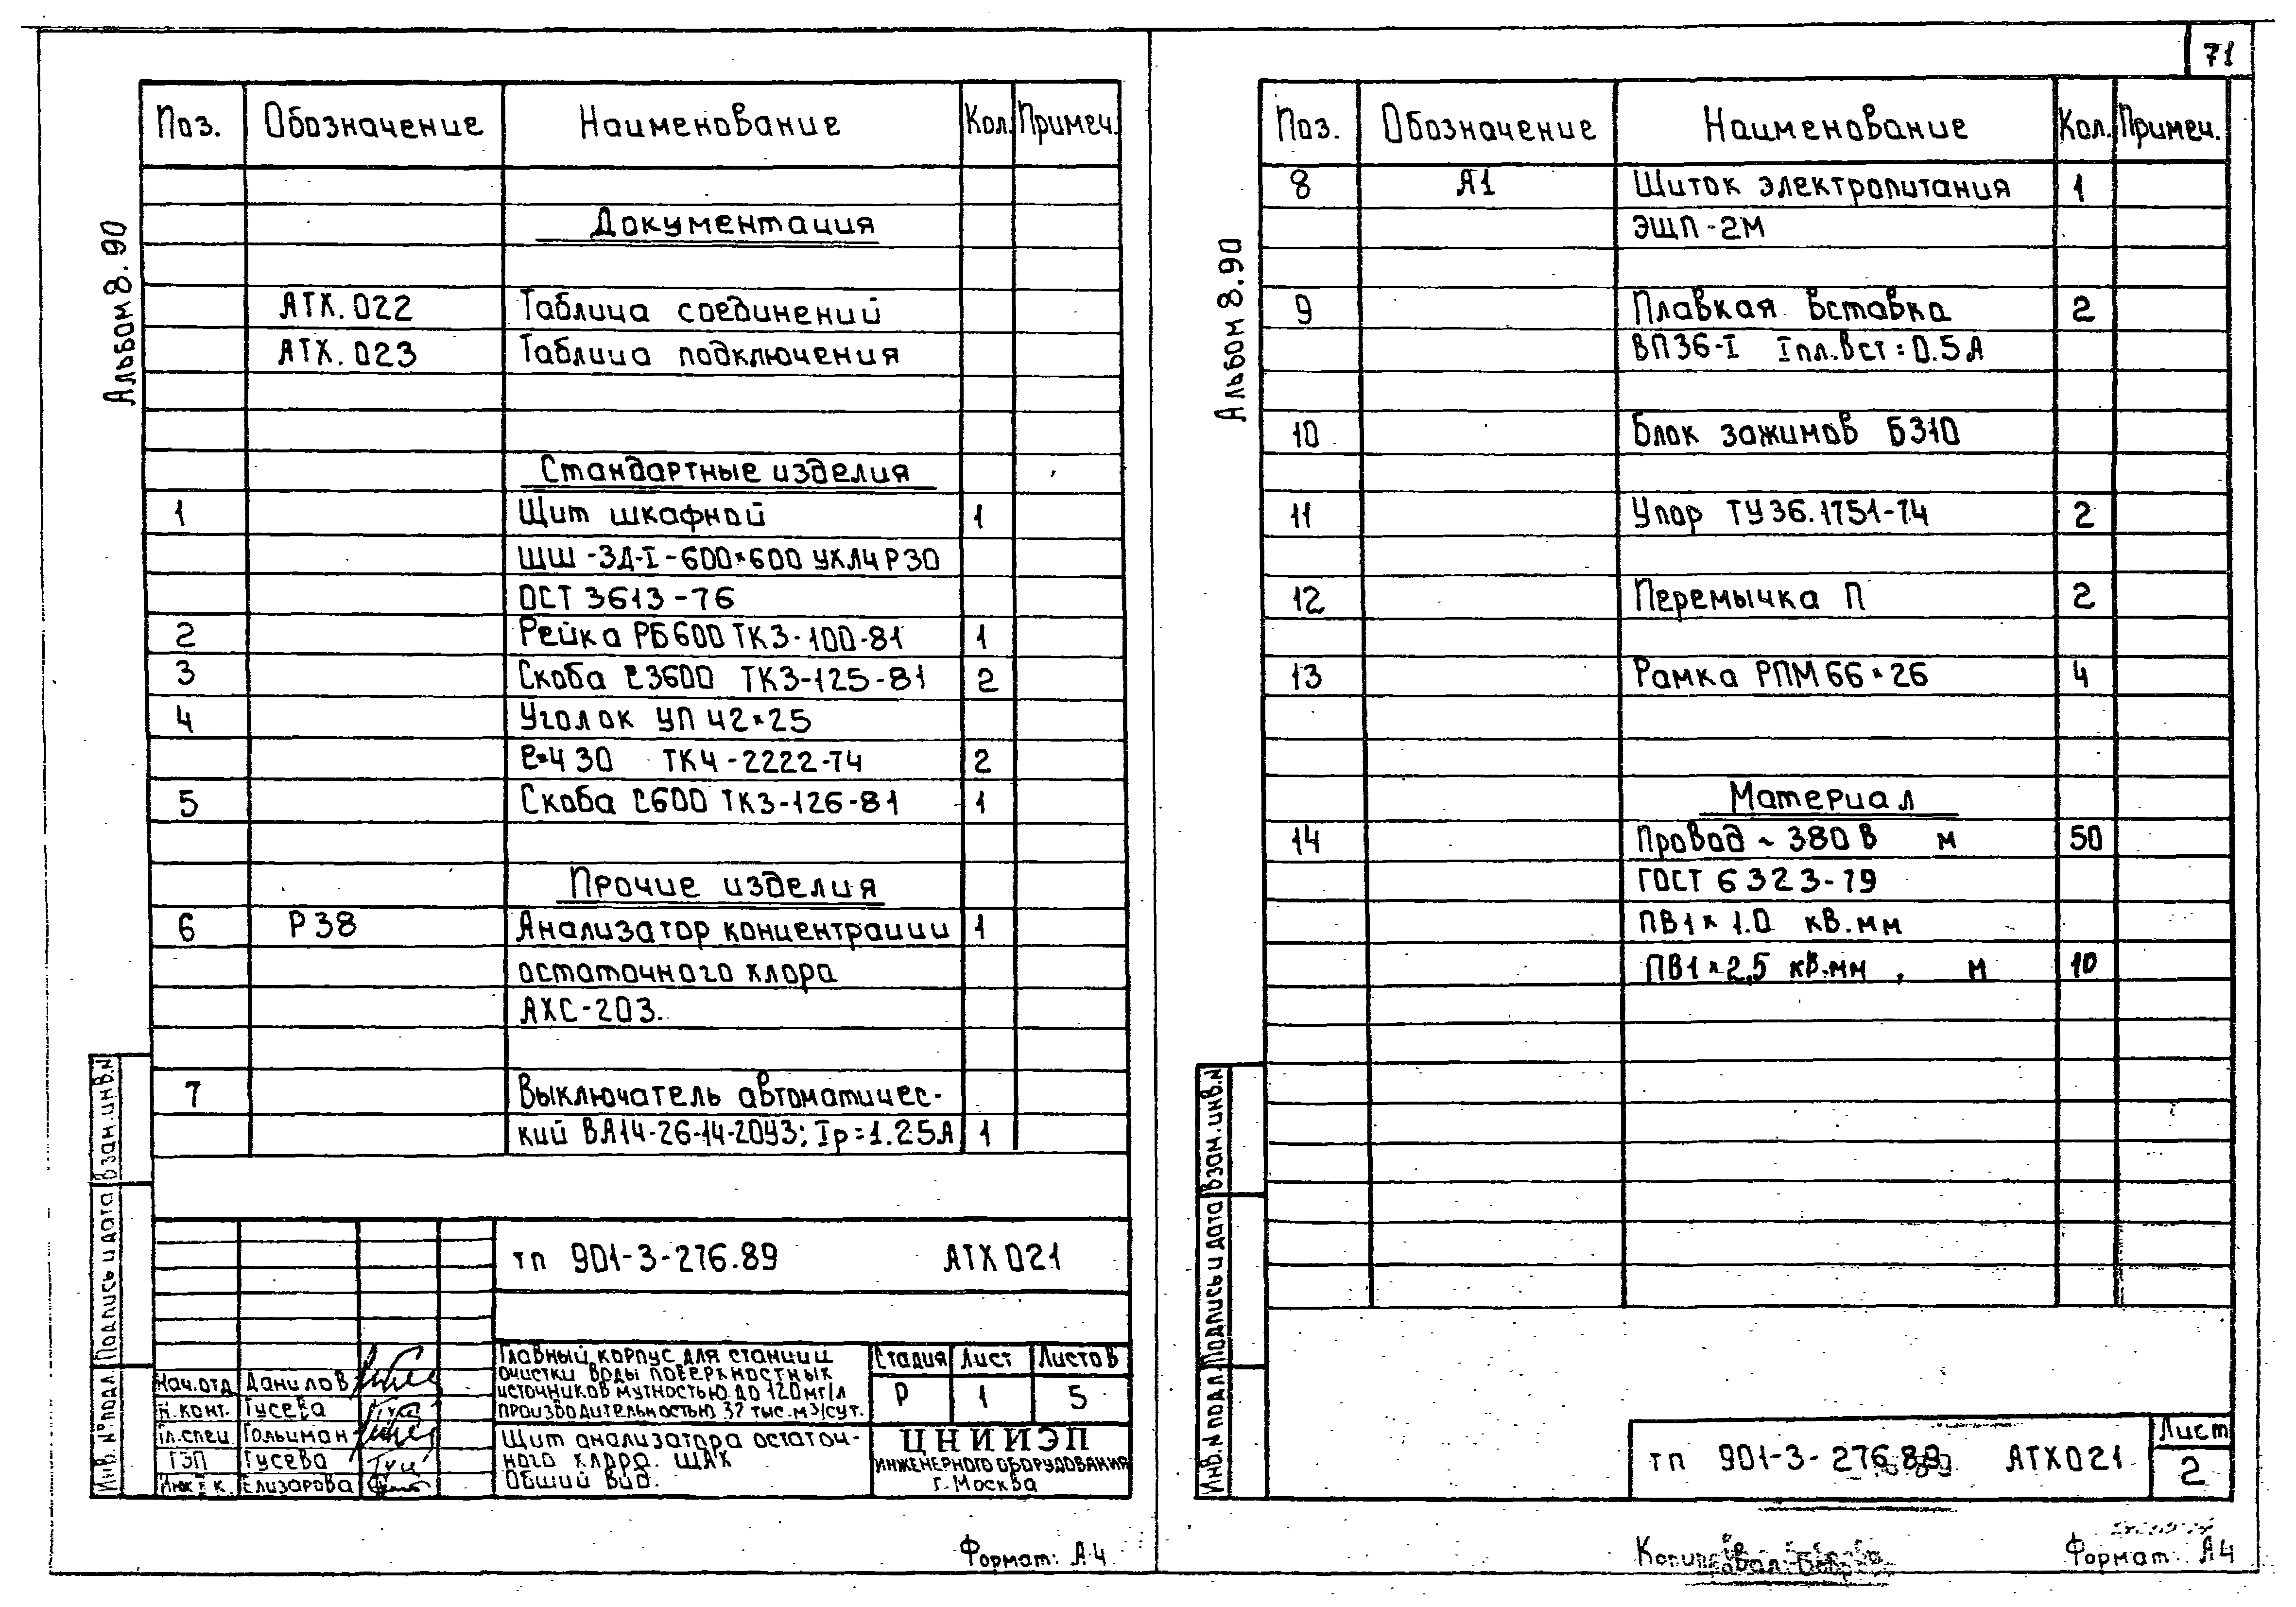 71
Альбом 8.90
Поз. Обозначение Наименование Кол. Примеч.
Документация
АТХ.022 Таблица соединений
АТХ.023 Таблица подключения
Стандартные изделия
1 Щит шкафной 1
ШШ-ЗД-I-600×600 УХЛ4 Р30
ОСТ 3613-76
2 Рейка РБ600 ТК3-100-81 1
3 Скоба С3600 ТК3-125-81 2
4 Уголок УП 42×25
ℓ=430 ТК4-2222-74 2
5 Скоба С600 ТК3-126-81 1
Прочие изделия
6 Р38 Анализатор концентрации 1
остаточного хлора
АХС-203.
7 Выключатель автоматичес-
кий ВА14-26-14-20У3; Iр=1.25А 1
Взам.инв.N
Подпись и дата
Инв.N°подл.
тп 901-3-276.89 АТХ021
Главный корпус для станции
очистки воды поверхностных
источников мутностью до 120мг/л
производительностью 32 тыс.м3/сут.
Стадия Лист Листов
Р 1 5
Нач.отд. Данилов
Н.конт. Гусева
Гл.спец. Гольцман
ГЭП Гусева
Инж I к. Елизарова
Щит анализатора остаточ-
ного хлора. ЩАХ
Общий вид.
ЦНИИЭП
ИНЖЕНЕРНОГО ОБОРУДОВАНИЯ
г. Москва
Формат: А4
Альбом 8.90
Поз. Обозначение Наименование Кол. Примеч.
8 А1 Щиток электропитания 1
ЭЩП-2М
9 Плавкая вставка 2
ВП36-I Iпл.вст=0.5А
10 Блок зажимов БЗ10
11 Упор ТУ36.1751-74 2
12 Перемычка П 2
13 Рамка РПМ 66×26 4
Материал
14 Провод ~ 380 В м 50
ГОСТ 6323-79
ПВ1×1.0 кв.мм
ПВ1×2.5 кв.мм, м 10
Взам.инв.N
Подпись и дата
Инв.N подл.
тп 901-3-276.89 АТХ021
Лист
2
Копировал:
Формат: А4